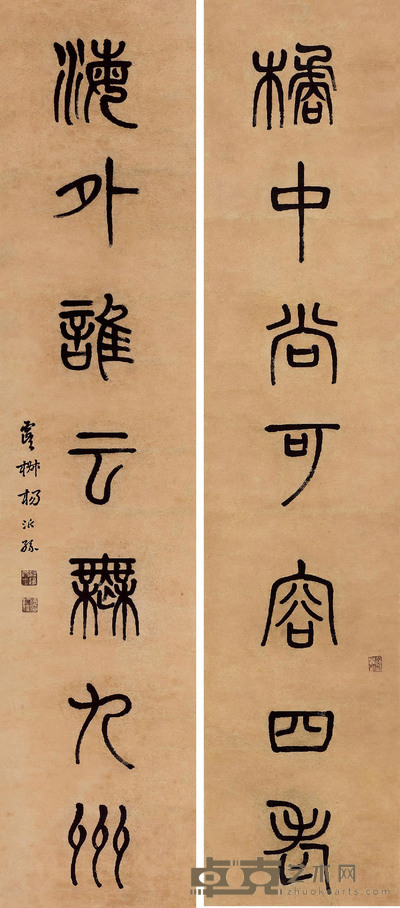 橘中尚可容四老
海外誰云無九州
楊沂孫
卓克艺术网
zhuokearts.com